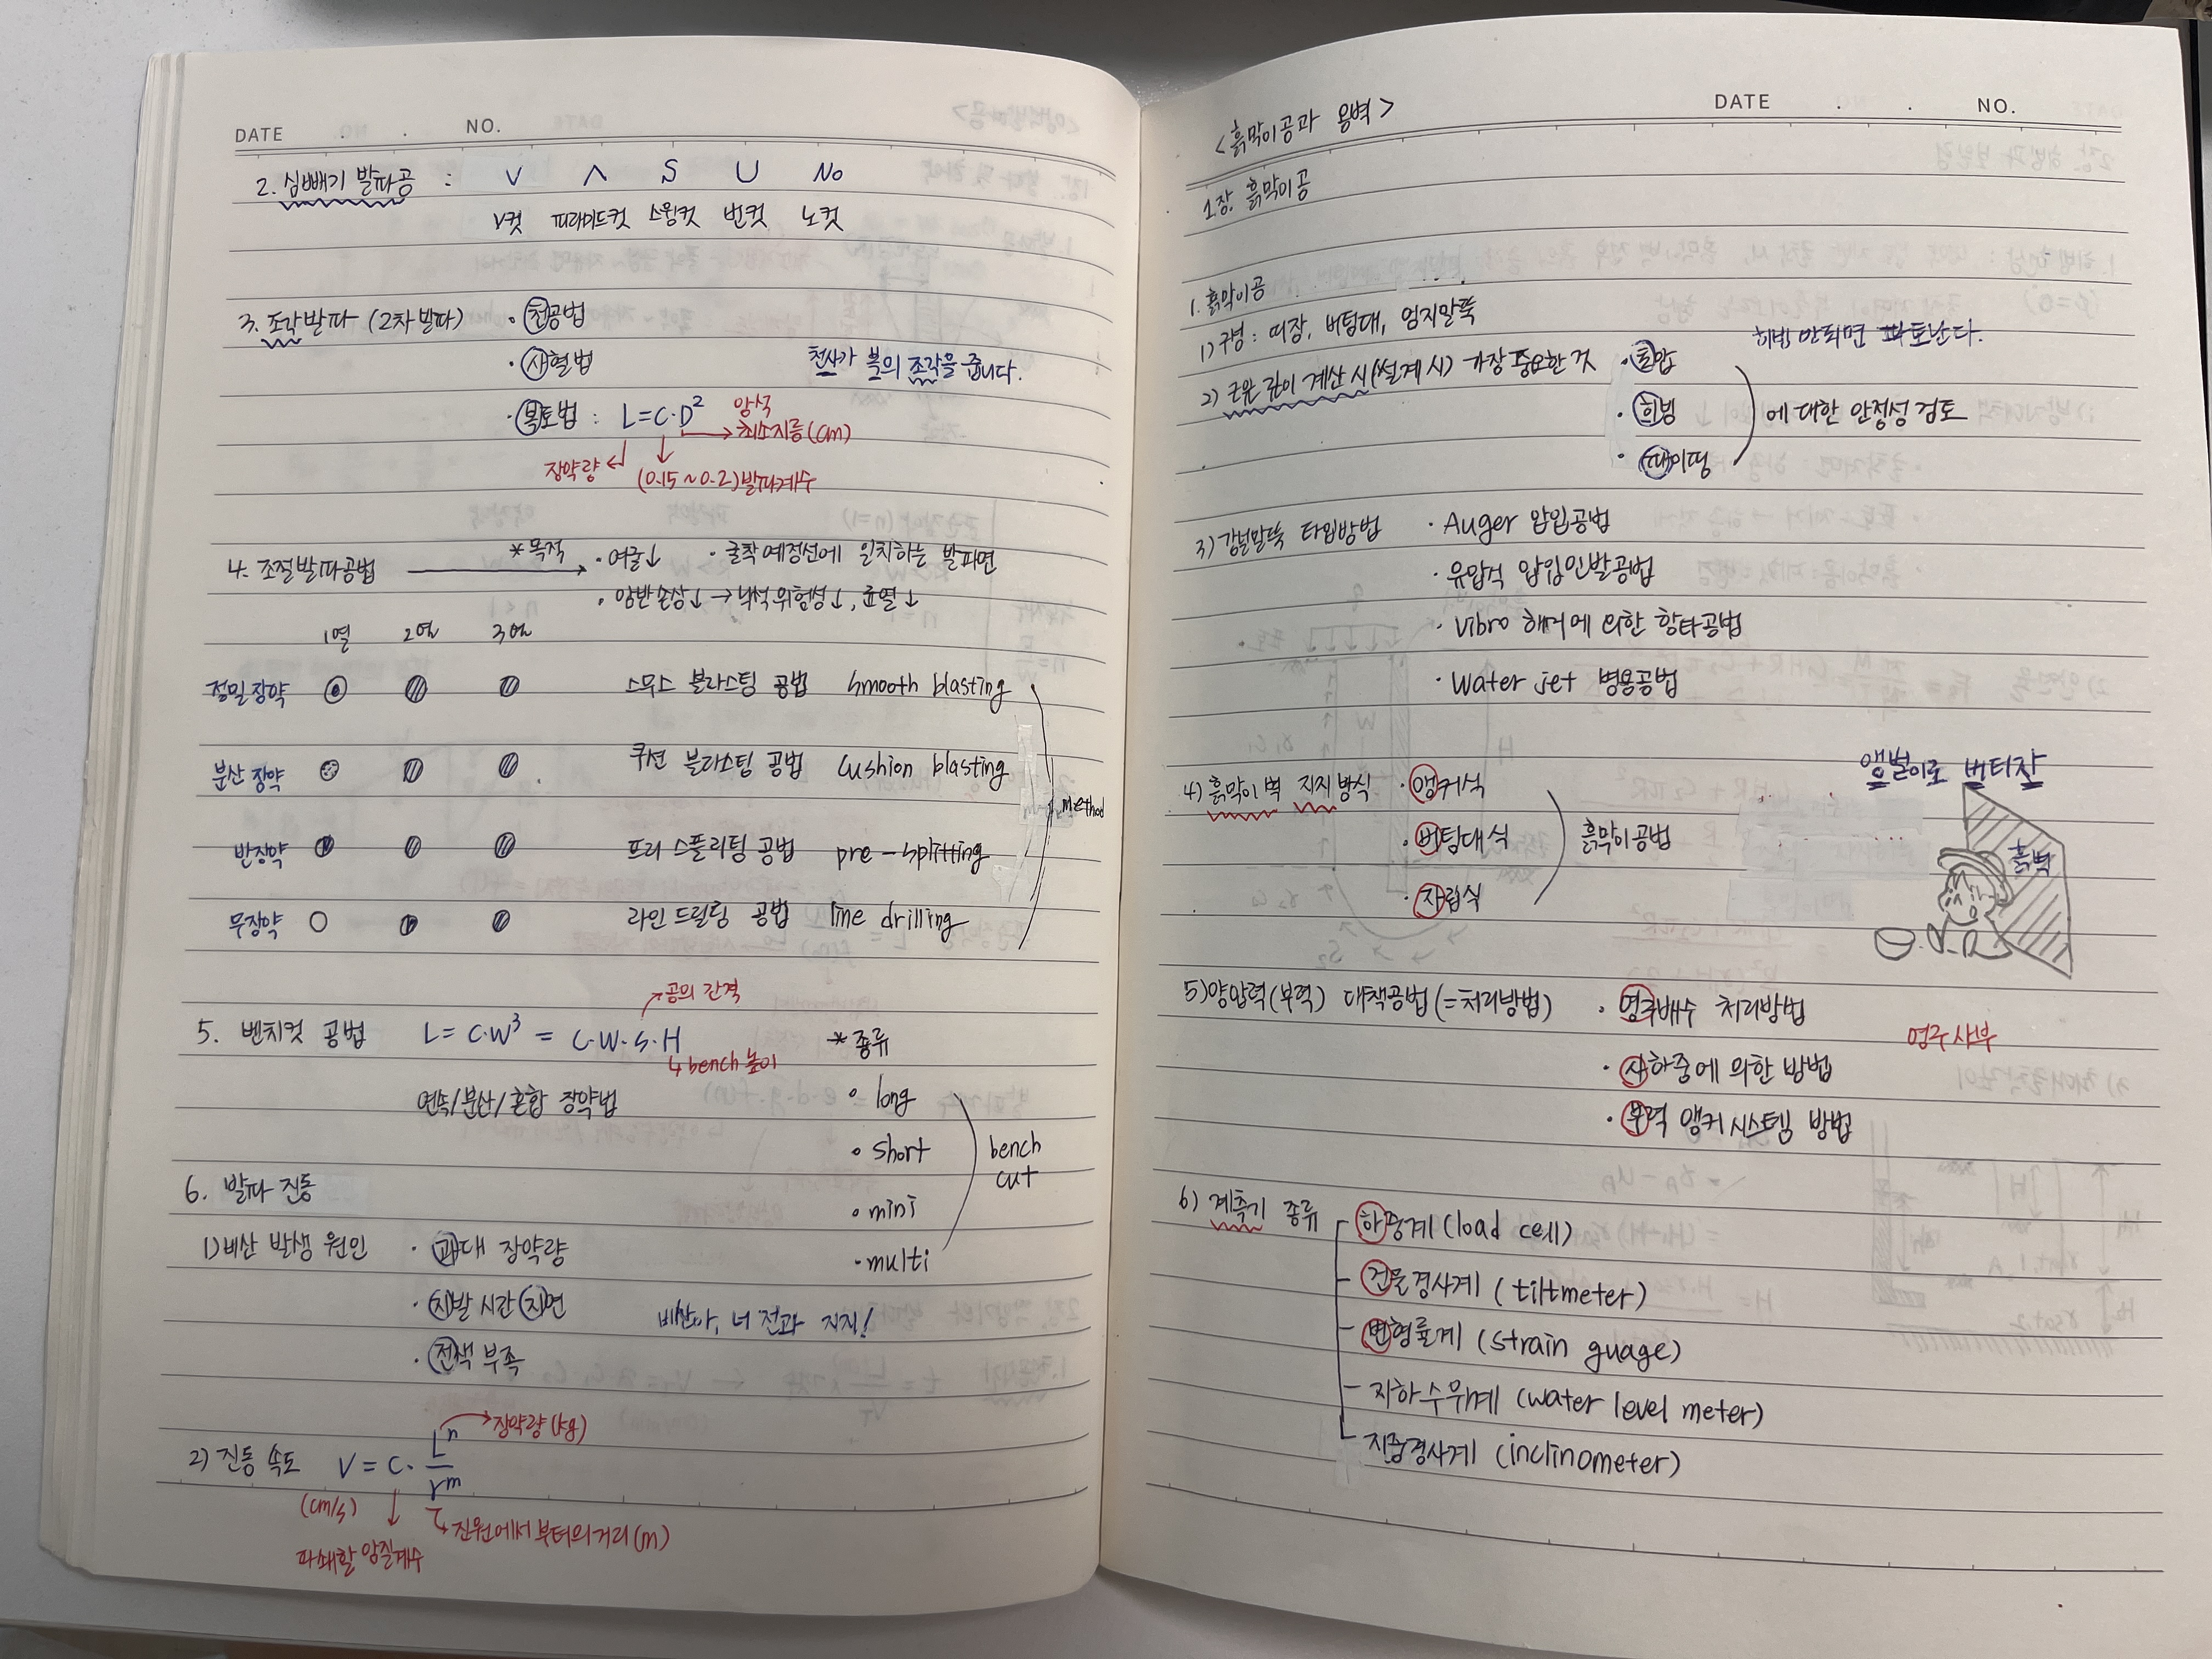 DATE . . NO.
2. 심빼기 발파공 : V Λ S U No
V컷 피라미드컷 스윙컷 번컷 노컷
3. 조각발파 (2차발파) · 천공법
· 사혈법 천사가 복의 조각을 줍니다.
· 복토법 : L=C·D² 암석
최소지름(cm)
장약량 (0.15~0.2)발파계수
4. 조절발파공법 *목적 · 여굴↓ · 굴착예정선에 일치하는 발파면
· 암반손상↓ → 낙석위험성↓, 균열↓
1열 2열 3열
정밀장약 스무스 블라스팅 공법 smooth blasting
분산장약 쿠션 블라스팅 공법 cushion blasting
method
반장약 프리 스플리팅 공법 pre-splitting
무장약 라인드릴링 공법 line drilling
공의 간격
5. 벤치컷 공법 L= C·W³ = C·W·S·H *종류
bench 높이
연속/분산/혼합 장약법 · long
· short bench
cut
6. 발파 진동 · mini
1)비산 발생 원인 · 과대 장약량 · multi
· 지발시간 지연 비산아, 너 전과 지지!
· 전색 부족
장약량(kg)
2) 진동 속도 V = C· Lⁿ/rᵐ
(cm/s) 진원에서부터의거리(m)
파쇄할 암질계수
DATE . . NO.
<흙막이공과 옹벽>
1장. 흙막이공
1. 흙막이공
1) 구성 : 띠장, 버팀대, 엄지말뚝
히빙 안되면 파토난다.
2) 근입 깊이 계산 시(설계 시) 가장 중요한 것 · 토압
· 히빙 에 대한 안정성 검토
· 파이핑
3) 강널말뚝 타입방법 · Auger 압입공법
· 유압식 압입인발공법
· Vibro 해머에 의한 항타공법
· Water jet 병용공법
앵벌이로 버티자
4) 흙막이벽 지지방식 · 앵커식
· 버팀대식 흙막이공법
· 자립식
흙벽
5)양압력(부력) 대책공법(=처리방법) · 영구배수 처리방법
영구사부
· 사하중에 의한 방법
· 부력 앵커시스템 방법
6) 계측기 종류 하중계(load cell)
건물경사계 (tiltmeter)
변형률계 (strain guage)
지하수위계 (water level meter)
지중경사계 (inclinometer)